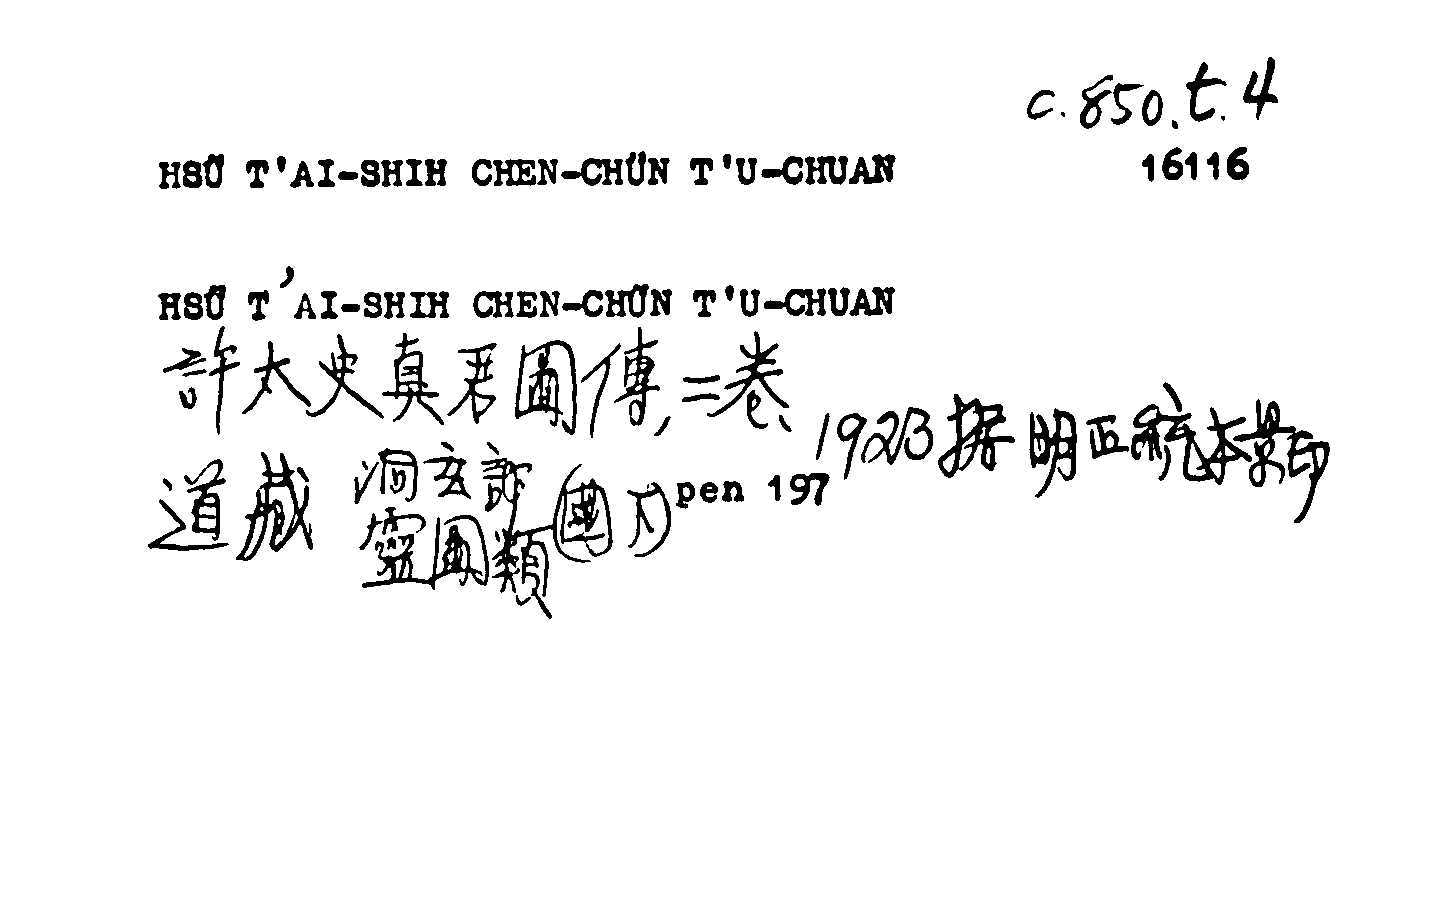 c.850.t.4
HSÜ T'AI-SHIH CHEN-CHÜN T'U-CHUAN 16116
HSÜ T'AI-SHIH CHEN-CHÜN T'U-CHUAN
許太史真君圖傳,二卷、
1923據明正統本景印
道藏 洞玄部 靈圖類 (國下) pen 197